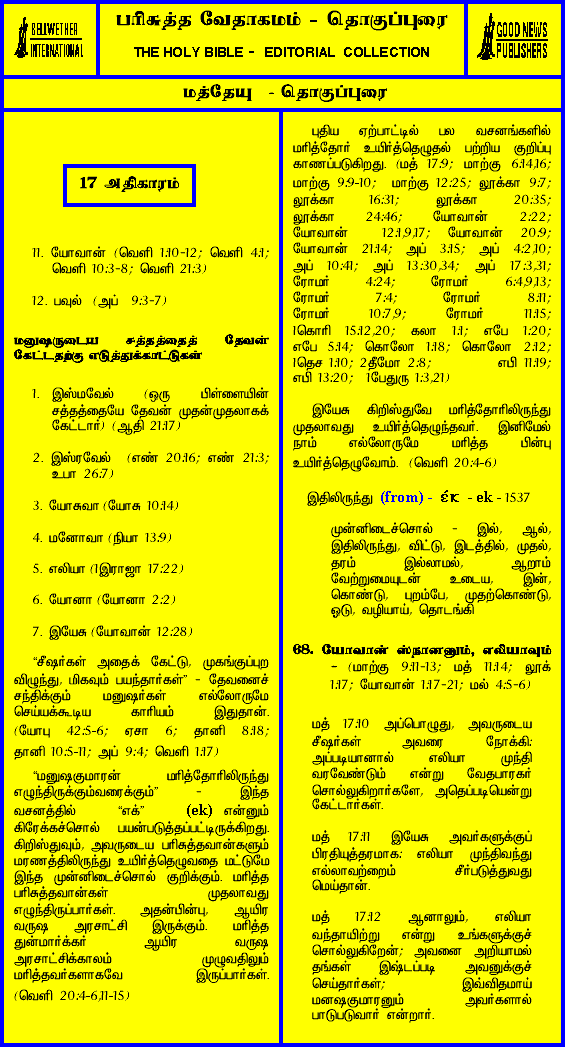 BELLWETHER
INTERNATIONAL
பரிசுத்த வேதாகமம் - தொகுப்புரை
THE HOLY BIBLE - EDITORIAL COLLECTION
GOOD NEWS
PUBLISHERS
மத்தேயு - தொகுப்புரை
17 அதிகாரம்
11. யோவான் (வெளி 1:10-12; வெளி 4:1;
வெளி 10:3-8; வெளி 21:3)
12. பவுல் (அப் 9:3-7)
மனுஷருடைய சத்தத்தைத் தேவன்
கேட்டதற்கு எடுத்துக்காட்டுகள்
1. இஸ்மவேல் (ஒரு பிள்ளையின்
சத்தத்தையே தேவன் முதன்முதலாகக்
கேட்டார்) (ஆதி 21:17)
2. இஸ்ரவேல் (எண் 20:16; எண் 21:3;
உபா 26:7)
3. யோசுவா (யோசு 10:14)
4. மனோவா (நியா 13:9)
5. எலியா (1இராஜா 17:22)
6. யோனா (யோனா 2:2)
7. இயேசு (யோவான் 12:28)
“சீஷர்கள் அதைக் கேட்டு, முகங்குப்புற
விழுந்து, மிகவும் பயந்தார்கள்” - தேவனைச்
சந்திக்கும் மனுஷர்கள் எல்லோருமே
செய்யக்கூடிய காரியம் இதுதான்.
(யோபு 42:5-6; ஏசா 6; தானி 8:18;
தானி 10:5-11; அப் 9:4; வெளி 1:17)
“மனுஷகுமாரன் மரித்தோரிலிருந்து
எழுந்திருக்கும்வரைக்கும்” - இந்த
வசனத்தில் “எக்” (ek) என்னும்
கிரேக்கச்சொல் பயன்படுத்தப்பட்டிருக்கிறது.
கிறிஸ்துவும், அவருடைய பரிசுத்தவான்களும்
மரணத்திலிருந்து உயிர்த்தெழுவதை மட்டுமே
இந்த முன்னிடைச்சொல் குறிக்கும். மரித்த
பரிசுத்தவான்கள் முதலாவது
எழுந்திருப்பார்கள். அதன்பின்பு, ஆயிர
வருஷ அரசாட்சி இருக்கும். மரித்த
துன்மார்க்கர் ஆயிர வருஷ
அரசாட்சிக்காலம் முழுவதிலும்
மரித்தவர்களாகவே இருப்பார்கள்.
(வெளி 20:4-6,11-15)
புதிய ஏற்பாட்டில் பல வசனங்களில்
மரித்தோர் உயிர்த்தெழுதல் பற்றிய குறிப்பு
காணப்படுகிறது. (மத் 17:9; மாற்கு 6:14,16;
மாற்கு 9:9-10; மாற்கு 12:25; லூக்கா 9:7;
லூக்கா 16:31; லூக்கா 20:35;
லூக்கா 24:46; யோவான் 2:22;
யோவான் 12:1,9,17; யோவான் 20:9;
யோவான் 21:14; அப் 3:15; அப் 4:2,10;
அப் 10:41; அப் 13:30,34; அப் 17:3,31;
ரோமர் 4:24; ரோமர் 6:4,9,13;
ரோமர் 7:4; ரோமர் 8:11;
ரோமர் 10:7,9; ரோமர் 11:15;
1கொரி 15:12,20; கலா 1:1; எபே 1:20;
எபே 5:14; கொலோ 1:18; கொலோ 2:12;
1தெச 1:10; 2தீமோ 2:8; எபி 11:19;
எபி 13:20; 1பேதுரு 1:3,21)
இயேசு கிறிஸ்துவே மரித்தோரிலிருந்து
முதலாவது உயிர்த்தெழுந்தவர். இனிமேல்
நாம் எல்லோருமே மரித்த பின்பு
உயிர்த்தெழுவோம். (வெளி 20:4-6)
இதிலிருந்து (from) - ἐκ - ek - 1537
முன்னிடைச்சொல் - இல், ஆல்,
இதிலிருந்து, விட்டு, இடத்தில், முதல்,
தரம் இல்லாமல், ஆறாம்
வேற்றுமையுடன் உடைய, இன்,
கொண்டு, புறம்பே, முதற்கொண்டு,
ஓடு, வழியாய், தொடங்கி
68. யோவான் ஸ்நானனும், எலியாவும்
- (மாற்கு 9:11-13; மத் 11:14; லூக்
1:17; யோவான் 1:17-21; மல் 4:5-6)
மத் 17:10 அப்பொழுது, அவருடைய
சீஷர்கள் அவரை நோக்கி:
அப்படியானால் எலியா முந்தி
வரவேண்டும் என்று வேதபாரகர்
சொல்லுகிறார்களே, அதெப்படியென்று
கேட்டார்கள்.
மத் 17:11 இயேசு அவர்களுக்குப்
பிரதியுத்தரமாக: எலியா முந்திவந்து
எல்லாவற்றையும் சீர்படுத்துவது
மெய்தான்.
மத் 17:12 ஆனாலும், எலியா
வந்தாயிற்று என்று உங்களுக்குச்
சொல்லுகிறேன்; அவனை அறியாமல்
தங்கள் இஷ்டப்படி அவனுக்குச்
செய்தார்கள்; இவ்விதமாய்
மனஷகுமாரனும் அவர்களால்
பாடுபடுவார் என்றார்.